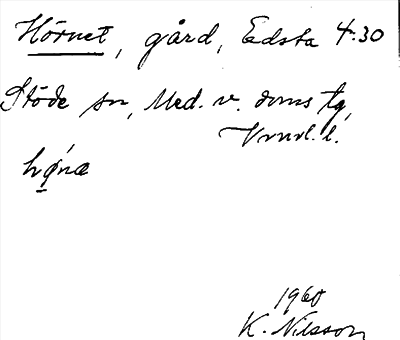 Hörnet, gård, Edsta 4.30
Stöde sn, Med. v. doms tg,
Vrnrl. l.
hǿnæ
1960
K. Nilsson